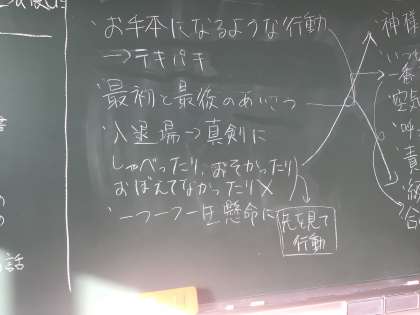 ・お手本になるような行動
→テキパキ
・最初と最後のあいさつ
・入退場→真剣に
しゃべったり、おそかったり
おぼえてなかったり×
・一つ一つ一生懸命に
先を見て
行動
神様
いつも
一番
空
呼
責
合
話